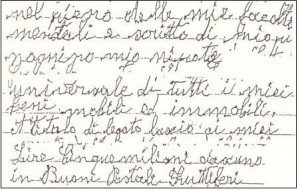 nel pieno delle mie facoltà
mentali e scritto di mio pu
gno mio nipote
universale di tutti i miei
beni mobili ed immobili.
A titolo di legato lascio ai miei
Lire Cinque milioni ciascuno
in Buoni Postali Fruttiferi